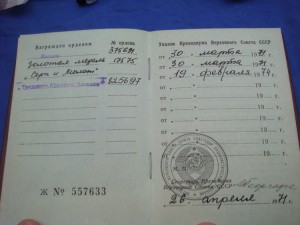 Награжден орденом № ордена
Ленина 375291
Золотая медаль 17575
"Серп и Молот"
Трудового Красного Знамени 825697
Ж № 557633
Указом Президиума Верховного Совета СССР
от 30 марта 1971 г.
от 30 марта 1971 г.
от 19 февраля 1974 г.
от 19 г.
от 19 г.
от 19 г.
от 19 г.
от 19 г.
от 19 г.
М. П.
Секретарь Президиума
Верховного Совета СССР
26 апреля 1971 г.